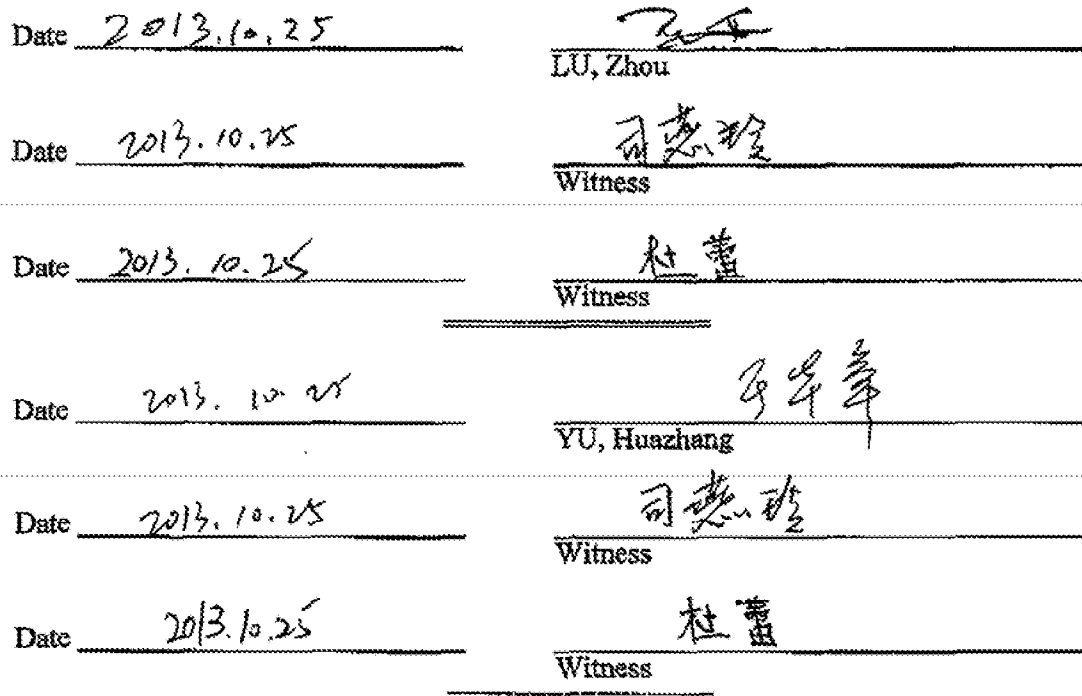 Date 2013.10.25
LU, Zhou
Date 2013.10.25 司慧玲
Witness
Date 2013.10.25 杜蕾
Witness
Date 2013. 10. 25 于华章
YU, Huazhang
Date 2013.10.25 司慧玲
Witness
Date 2013.10.25 杜蕾
Witness